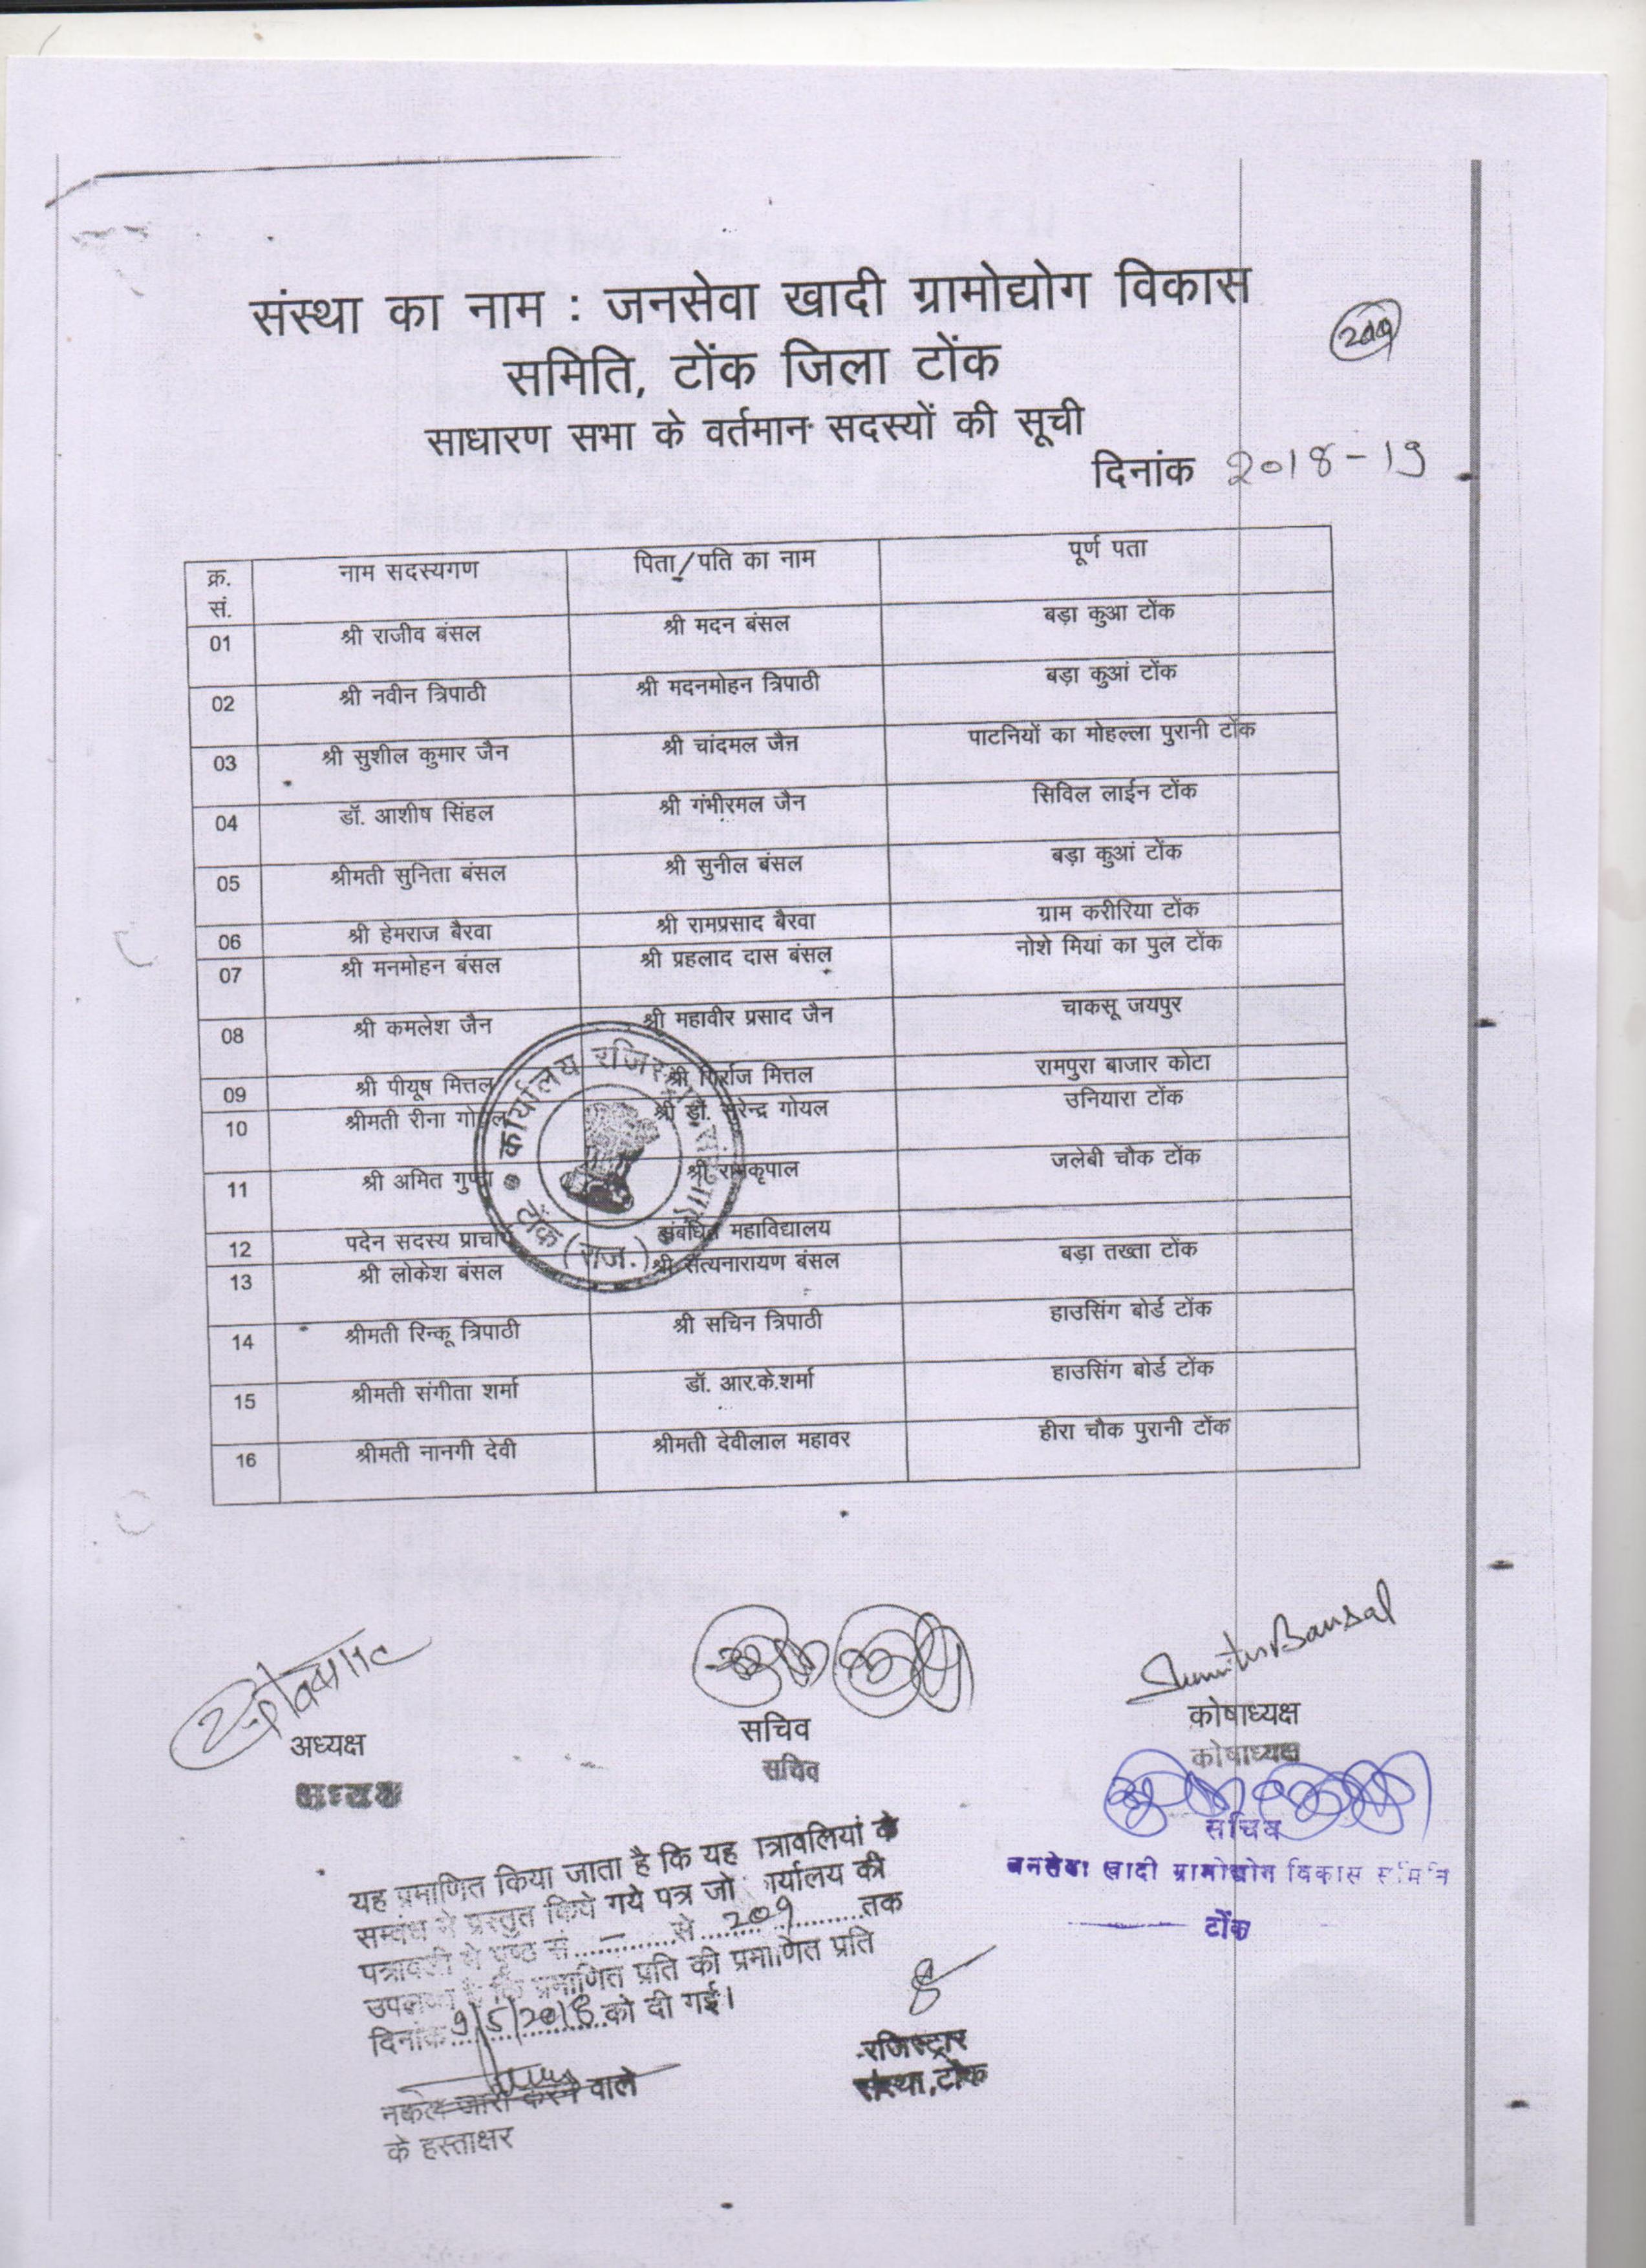 संस्था का नाम : जनसेवा खादी ग्रामोद्योग विकास
209
समिति, टोंक जिला टोंक
साधारण सभा के वर्तमान सदस्यों की सूची
दिनांक 2018-19
क्र. सं. नाम सदस्यगण पिता/पति का नाम पूर्ण पता
01 श्री राजीव बंसल श्री मदन बंसल बड़ा कुआ टोंक
02 श्री नवीन त्रिपाठी श्री मदनमोहन त्रिपाठी बड़ा कुआं टोंक
03 श्री सुशील कुमार जैन श्री चांदमल जैन पाटनियों का मोहल्ला पुरानी टोंक
04 डॉ. आशीष सिंहल श्री गंभीरमल जैन सिविल लाईन टोंक
05 श्रीमती सुनिता बंसल श्री सुनील बंसल बड़ा कुआं टोंक
06 श्री हेमराज बैरवा श्री रामप्रसाद बैरवा ग्राम करीरिया टोंक
07 श्री मनमोहन बंसल श्री प्रहलाद दास बंसल नोशे मियां का पुल टोंक
08 श्री कमलेश जैन श्री महावीर प्रसाद जैन चाकसू जयपुर
09 श्री पीयूष मित्तल श्री गिर्राज मित्तल रामपुरा बाजार कोटा
10 श्रीमती रीना गोयल श्री डॉ. सुरेन्द्र गोयल उनियारा टोंक
11 श्री अमित गुप्ता श्री रामकृपाल जलेबी चौक टोंक
12 पदेन सदस्य प्राचार्य संबंधित महाविद्यालय
13 श्री लोकेश बंसल श्री सत्यनारायण बंसल बड़ा तख्ता टोंक
14 श्रीमती रिन्कू त्रिपाठी श्री सचिन त्रिपाठी हाउसिंग बोर्ड टोंक
15 श्रीमती संगीता शर्मा डॉ. आर.के.शर्मा हाउसिंग बोर्ड टोंक
16 श्रीमती नानगी देवी श्रीमती देवीलाल महावर हीरा चौक पुरानी टोंक
कार्यालय रजिस्ट्रार टोंक (राज.)
Sunita Bansal
अध्यक्ष सचिव कोषाध्यक्ष
अध्यक्ष सचिव कोषाध्यक्ष
सचिव
जनसेवा खादी ग्रामोद्योग विकास समिति
टोंक
यह प्रमाणित किया जाता है कि यह त्रावलियां के
सम्बंध में प्रस्तुत किये गये पत्र जो र्यालय की
पत्रावली में पृष्ठ सं.....–.....से....209..........तक
उपलब्ध है कि प्रमाणित प्रति की प्रमाणित प्रति
दिनांक 9/5/2018 को दी गई।
रजिस्ट्रार
संस्था, टोंक
नकल जारी करने वाले
के हस्ताक्षर